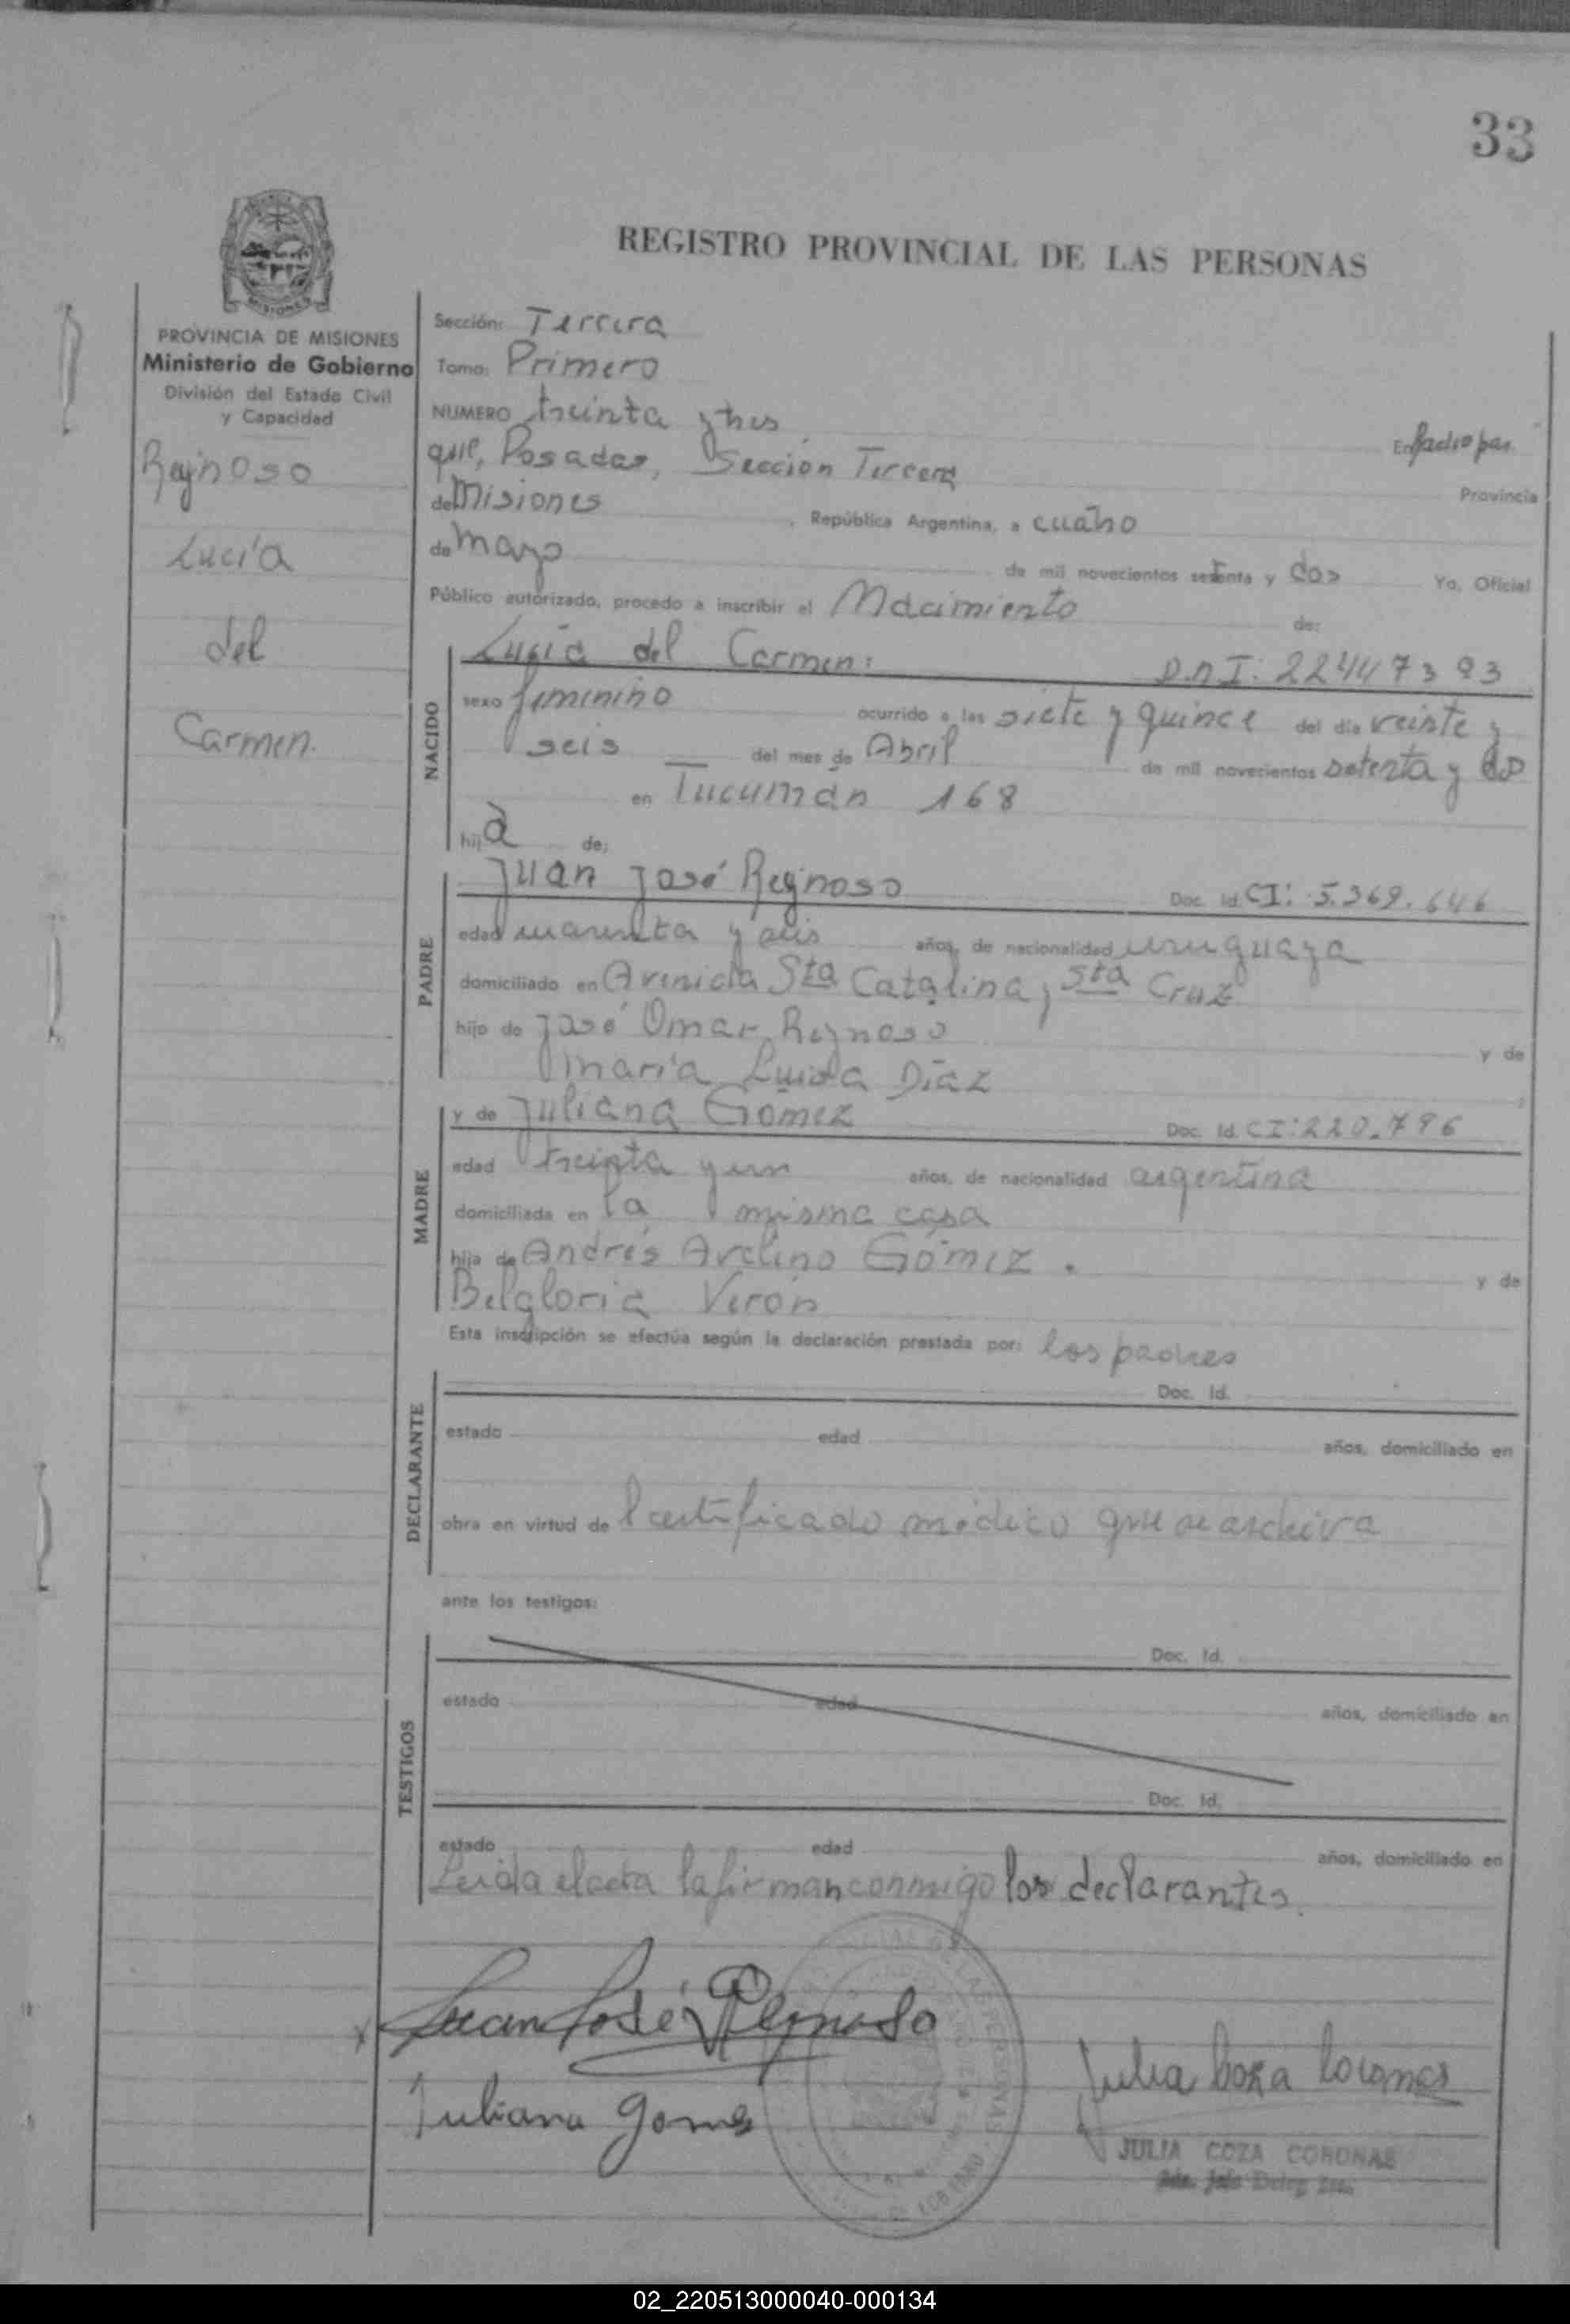 33
REGISTRO PROVINCIAL DE LAS PERSONAS
MISIONES
PROVINCIA DE MISIONES
Ministerio de Gobierno
División del Estado Civil
y Capacidad
Reynoso
Lucía
del
Carmen.
Sección: Tercera
Tomo: Primero
NUMERO treinta y tres En Padre par
que, Posadas, Sección Tercera Provincia
de Misiones, República Argentina, a cuatro
de mayo de mil novecientos setenta y dos Yo, Oficial
Público autorizado, procedo a inscribir el Nacimiento de:
NACIDO
Lucía del Carmen: D.N.I: 22447393
sexo femenino ocurrido a las siete y quince del día veinte y
seis del mes de Abril de mil novecientos setenta y dos
en Tucumán 168
hija de:
PADRE
Juan José Reynoso Doc. Id. CI: 5.369.646
edad cuarenta y seis años, de nacionalidad uruguaya
domiciliado en Avenida Sta Catalina y Sta Cruz
hijo de José Omar Reynoso y de
María Luisa Díaz
MADRE
y de Juliana Gómez Doc. Id. CI: 220.796
edad treinta y un años, de nacionalidad argentina
domiciliada en la misma casa
hija de Andrés Avelino Gómez. y de
Belgloria Verón
Esta inscripción se efectúa según la declaración prestada por: los padres
DECLARANTE
Doc. Id.
estado edad años, domiciliado en
obra en virtud de certificado médico que se archiva
ante los testigos:
TESTIGOS
Doc. Id.
estado edad años, domiciliado en
Doc. Id.
estado edad años, domiciliado en
Leida el acta la firman conmigo los declarantes.
Juan José Reynoso
Juliana Gomes
Julia Coza Coronas
JULIA COZA CORONAS
02_220513000040-000134